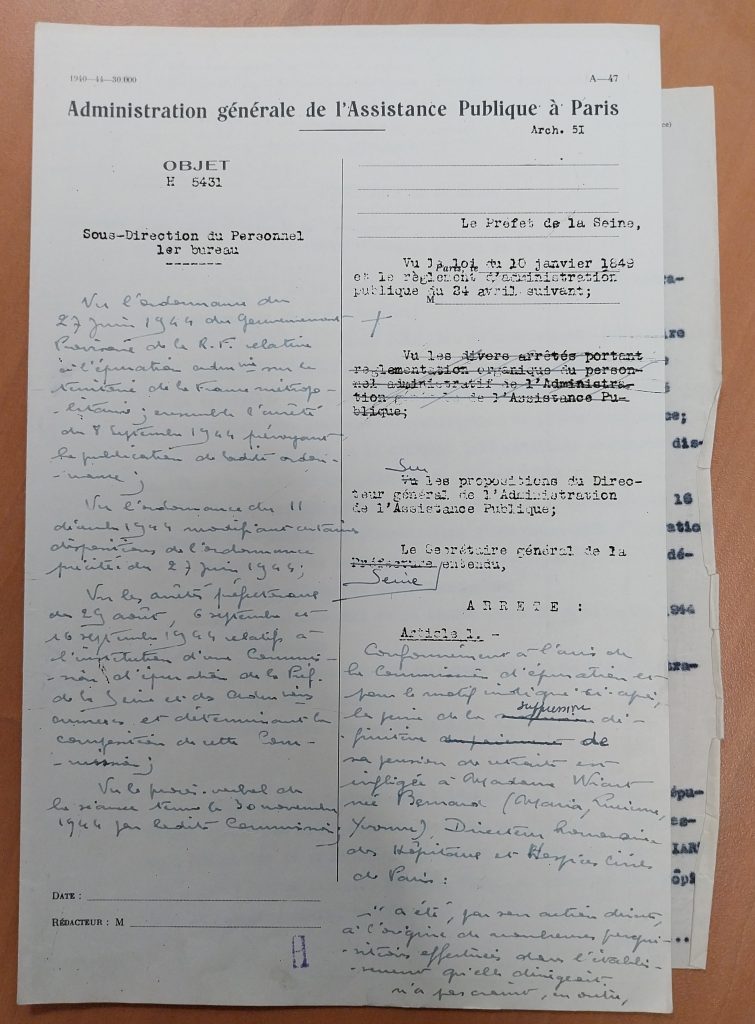 1940—44—30.000
A—47
Administration générale de l'Assistance Publique à Paris
Arch. 5I
OBJET
H 5431
Sous-Direction du Personnel
1er bureau
Vu l'ordonnance du
27 juin 1944 du Gouvernement
Provisoire de la R.F. relative
à l'épuration admive sur le
territoire de la France métropo-
-litaine ; ensemble l'arrêté
du 8 Septembre 1944 prévoyant
la publication de ladite ordon-
-nance ;
Vu l'ordonnance du 11
décembre 1944 modifiant certaines
dispositions de l'ordonnance
précitée du 27 juin 1944 ;
Vu les arrêtés préfectoraux
des 29 août, 6 septembre et
16 septembre 1944 relatifs à
l'institution d'une Commis-
-sion d'épuration de la Préf.
de la Seine et des Admions
annexes et déterminant la
composition de cette Com-
-mission ;
Vu le procès-verbal de
la séance tenue le 30 novembre
1944 par ladite Commission ;
DATE :
RÉDACTEUR : M
H
Le Préfet de la Seine,
Vu la loi du 10 janvier 1849
Paris, le
et le règlement d'administration
publique du 24 avril suivant;
M
Vu les divers arrêtés portant
reglementation organique du person-
nel administratif de l'Administra-
tion générale de l'Assistance Pu-
blique;
Sur
Vu les propositions du Direc-
teur général de l'Administration
de l'Assistance Publique;
Le Secrétaire général de la
Préfecture entendu,
Seine
ARRETE :
Article 1. -
Conformément à l'avis de
la Commission d'épuration et
pour le motif indiqué ci-après,
suppression
la peine de la dé-
finitive de
sa pension de retraite est
infligée à Madame Wiart
née Bernard (Maria, Lucienne,
Yvonne), Directeur honoraire
des Hôpitaux et Hospices Civils
de Paris :
"a été, par son action directe,
à l'origine de nombreuses perqui-
-sitions effectuées dans l'établis-
-sement qu'elle dirigeait
n'a pas craint, en outre,
ce)
ra-
ire
ce;
dis-
16
atio
dé-
1944
ra-
épu-
es-
IAR
ôpi